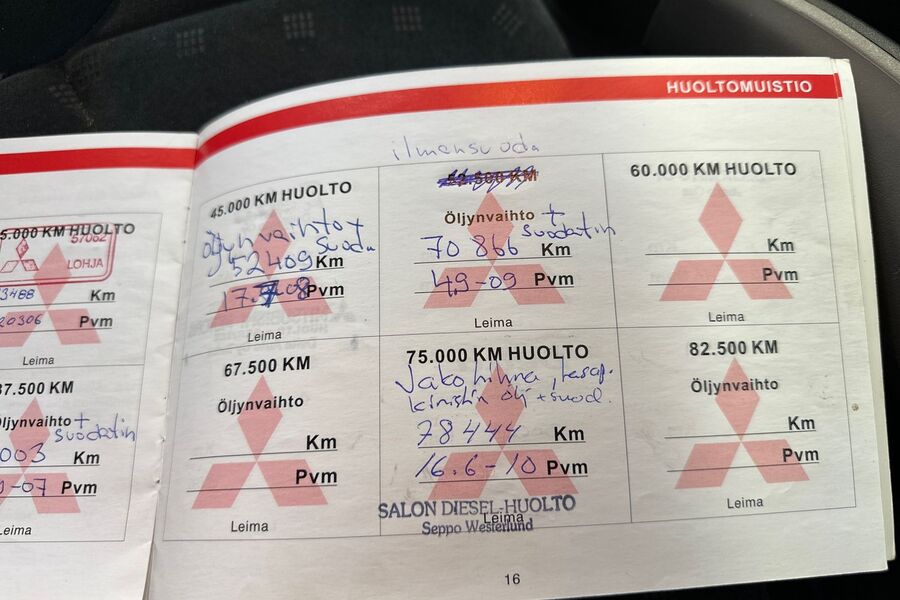 HUOLTOMUISTIO
5.000 KM HUOLTO
57062
LOHJA
3488 Km
20306 Pvm
Leima
37.500 KM
Öljynvaihto +
suodatin
003 Km
-07 Pvm
Leima
ilmansuoda
45.000 KM HUOLTO
öljynvaihto +
suoda
52409 Km
17. 08 Pvm
Leima
52.500 KM
Öljynvaihto +
suodatin
70 866 Km
4.9-09 Pvm
Leima
60.000 KM HUOLTO
Km
Pvm
Leima
67.500 KM
Öljynvaihto
Km
Pvm
Leima
75.000 KM HUOLTO
Jakohihna, tasap.
kiristin ölj + suod.
78444 Km
16.6-10 Pvm
Leima
SALON DIESEL-HUOLTO
Seppo Westerlund
82.500 KM
Öljynvaihto
Km
Pvm
Leima
16